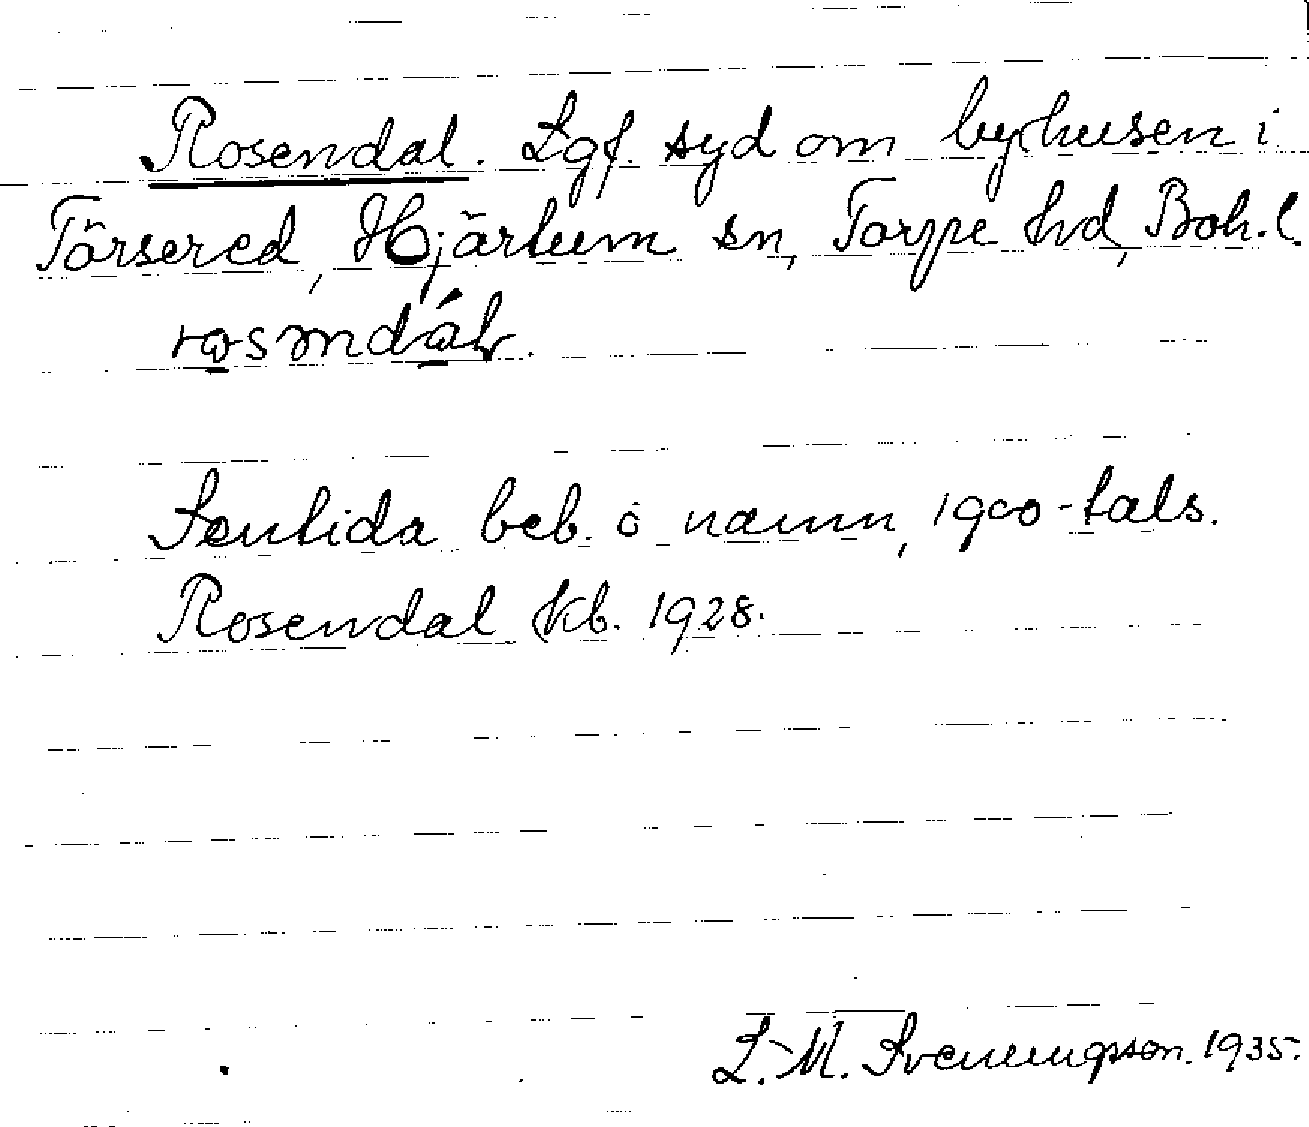 Rosendal. Lgf. syd om byhusen i
Törsered, Hjärtum sn, Torpe hd, Boh.l.
Sentida beb. o namn, 1900-tals.
Rosendal kb. 1928.
L.-M. Svenungsson. 1935.